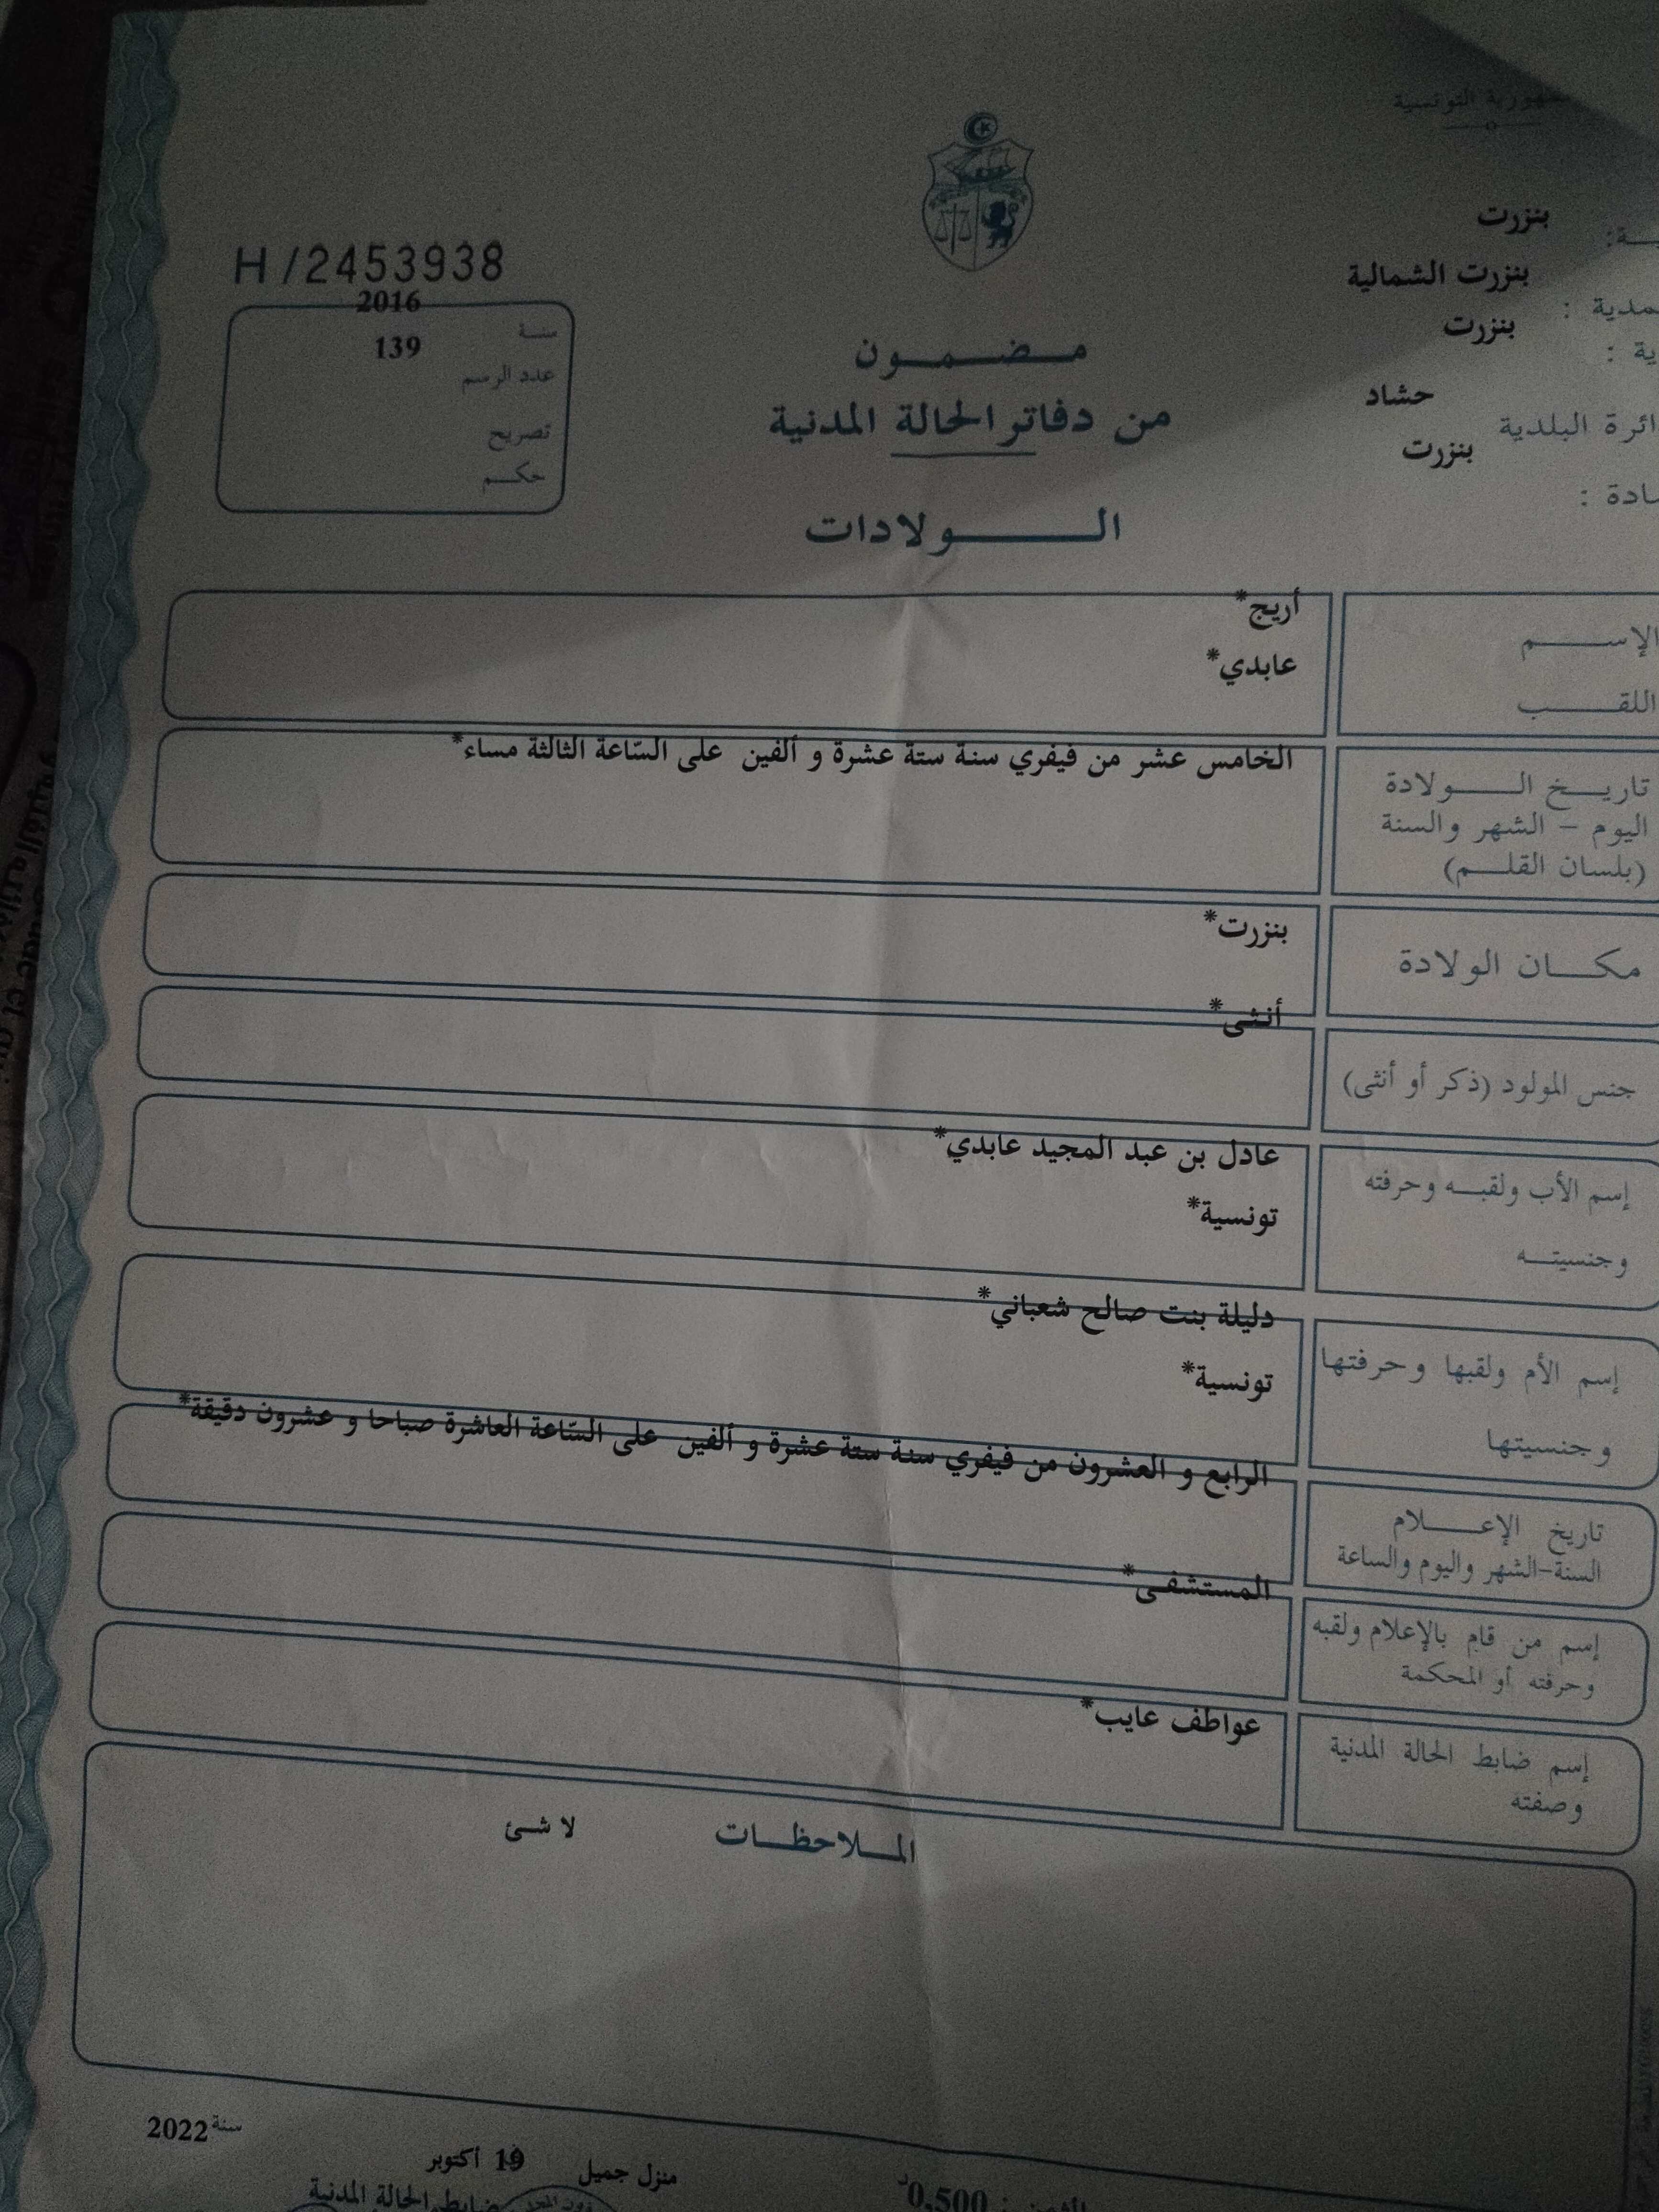 التونسية
بنزرت
بنزرت الشمالية
بنزرت
حشاد
البلدية
بنزرت
H/2453938
سنة 2016
عدد الرسم 139
تصريح
حكم
مضمون
من دفاتر الحالة المدنية
الولادات
الإسم أريج*
اللقب عابدي*
تاريخ الولادة الخامس عشر من فيفري سنة ستة عشرة و ألفين على السّاعة الثالثة مساء*
اليوم - الشهر والسنة
(بلسان القلم)
مكان الولادة بنزرت*
جنس المولود (ذكر أو أنثى) أنثى*
إسم الأب ولقبه وحرفته عادل بن عبد المجيد عابدي*
وجنسيته تونسية*
إسم الأم ولقبها وحرفتها دليلة بنت صالح شعباني*
وجنسيتها تونسية*
تاريخ الإعلام الرابع و العشرون من فيفري سنة ستة عشرة و ألفين على السّاعة العاشرة صباحا و عشرون دقيقة*
السنة-الشهر واليوم والساعة
إسم من قام بالإعلام ولقبه المستشفى*
وحرفته أو المحكمة
إسم ضابط الحالة المدنية عواطف عايب*
وصفته
الملاحظات لا شئ
منزل جميل 19 أكتوبر سنة 2022
ضابط الحالة المدنية
الثمن : 0,500د